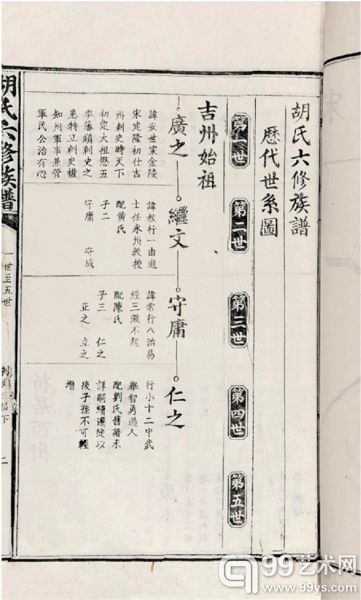 胡氏六修族譜
歷代世系圖
第一世
第二世
第三世
第四世
第五世
吉州始祖
廣之
繼文
守庸
仁之
諱安世家金陵
宋建隆初仕吉
州刺史時天下
初定大祖懲五
季藩鎮刺史之
患特立刺史權
知州軍事兼管
軍民公治有
諱敖行一由進
士任永州教授
配黃氏
子二
守庸 守成
諱常行八治易
經三徵不起
配陳氏
子三 仁之
正之 立之
行小十二中武
舉智勇過人
配劉氏舊譜未
詳嗣續遷徙以
後子孫不可輕
增
胡氏六修族譜
一世至五世
二
99艺术网
www.99ys.com